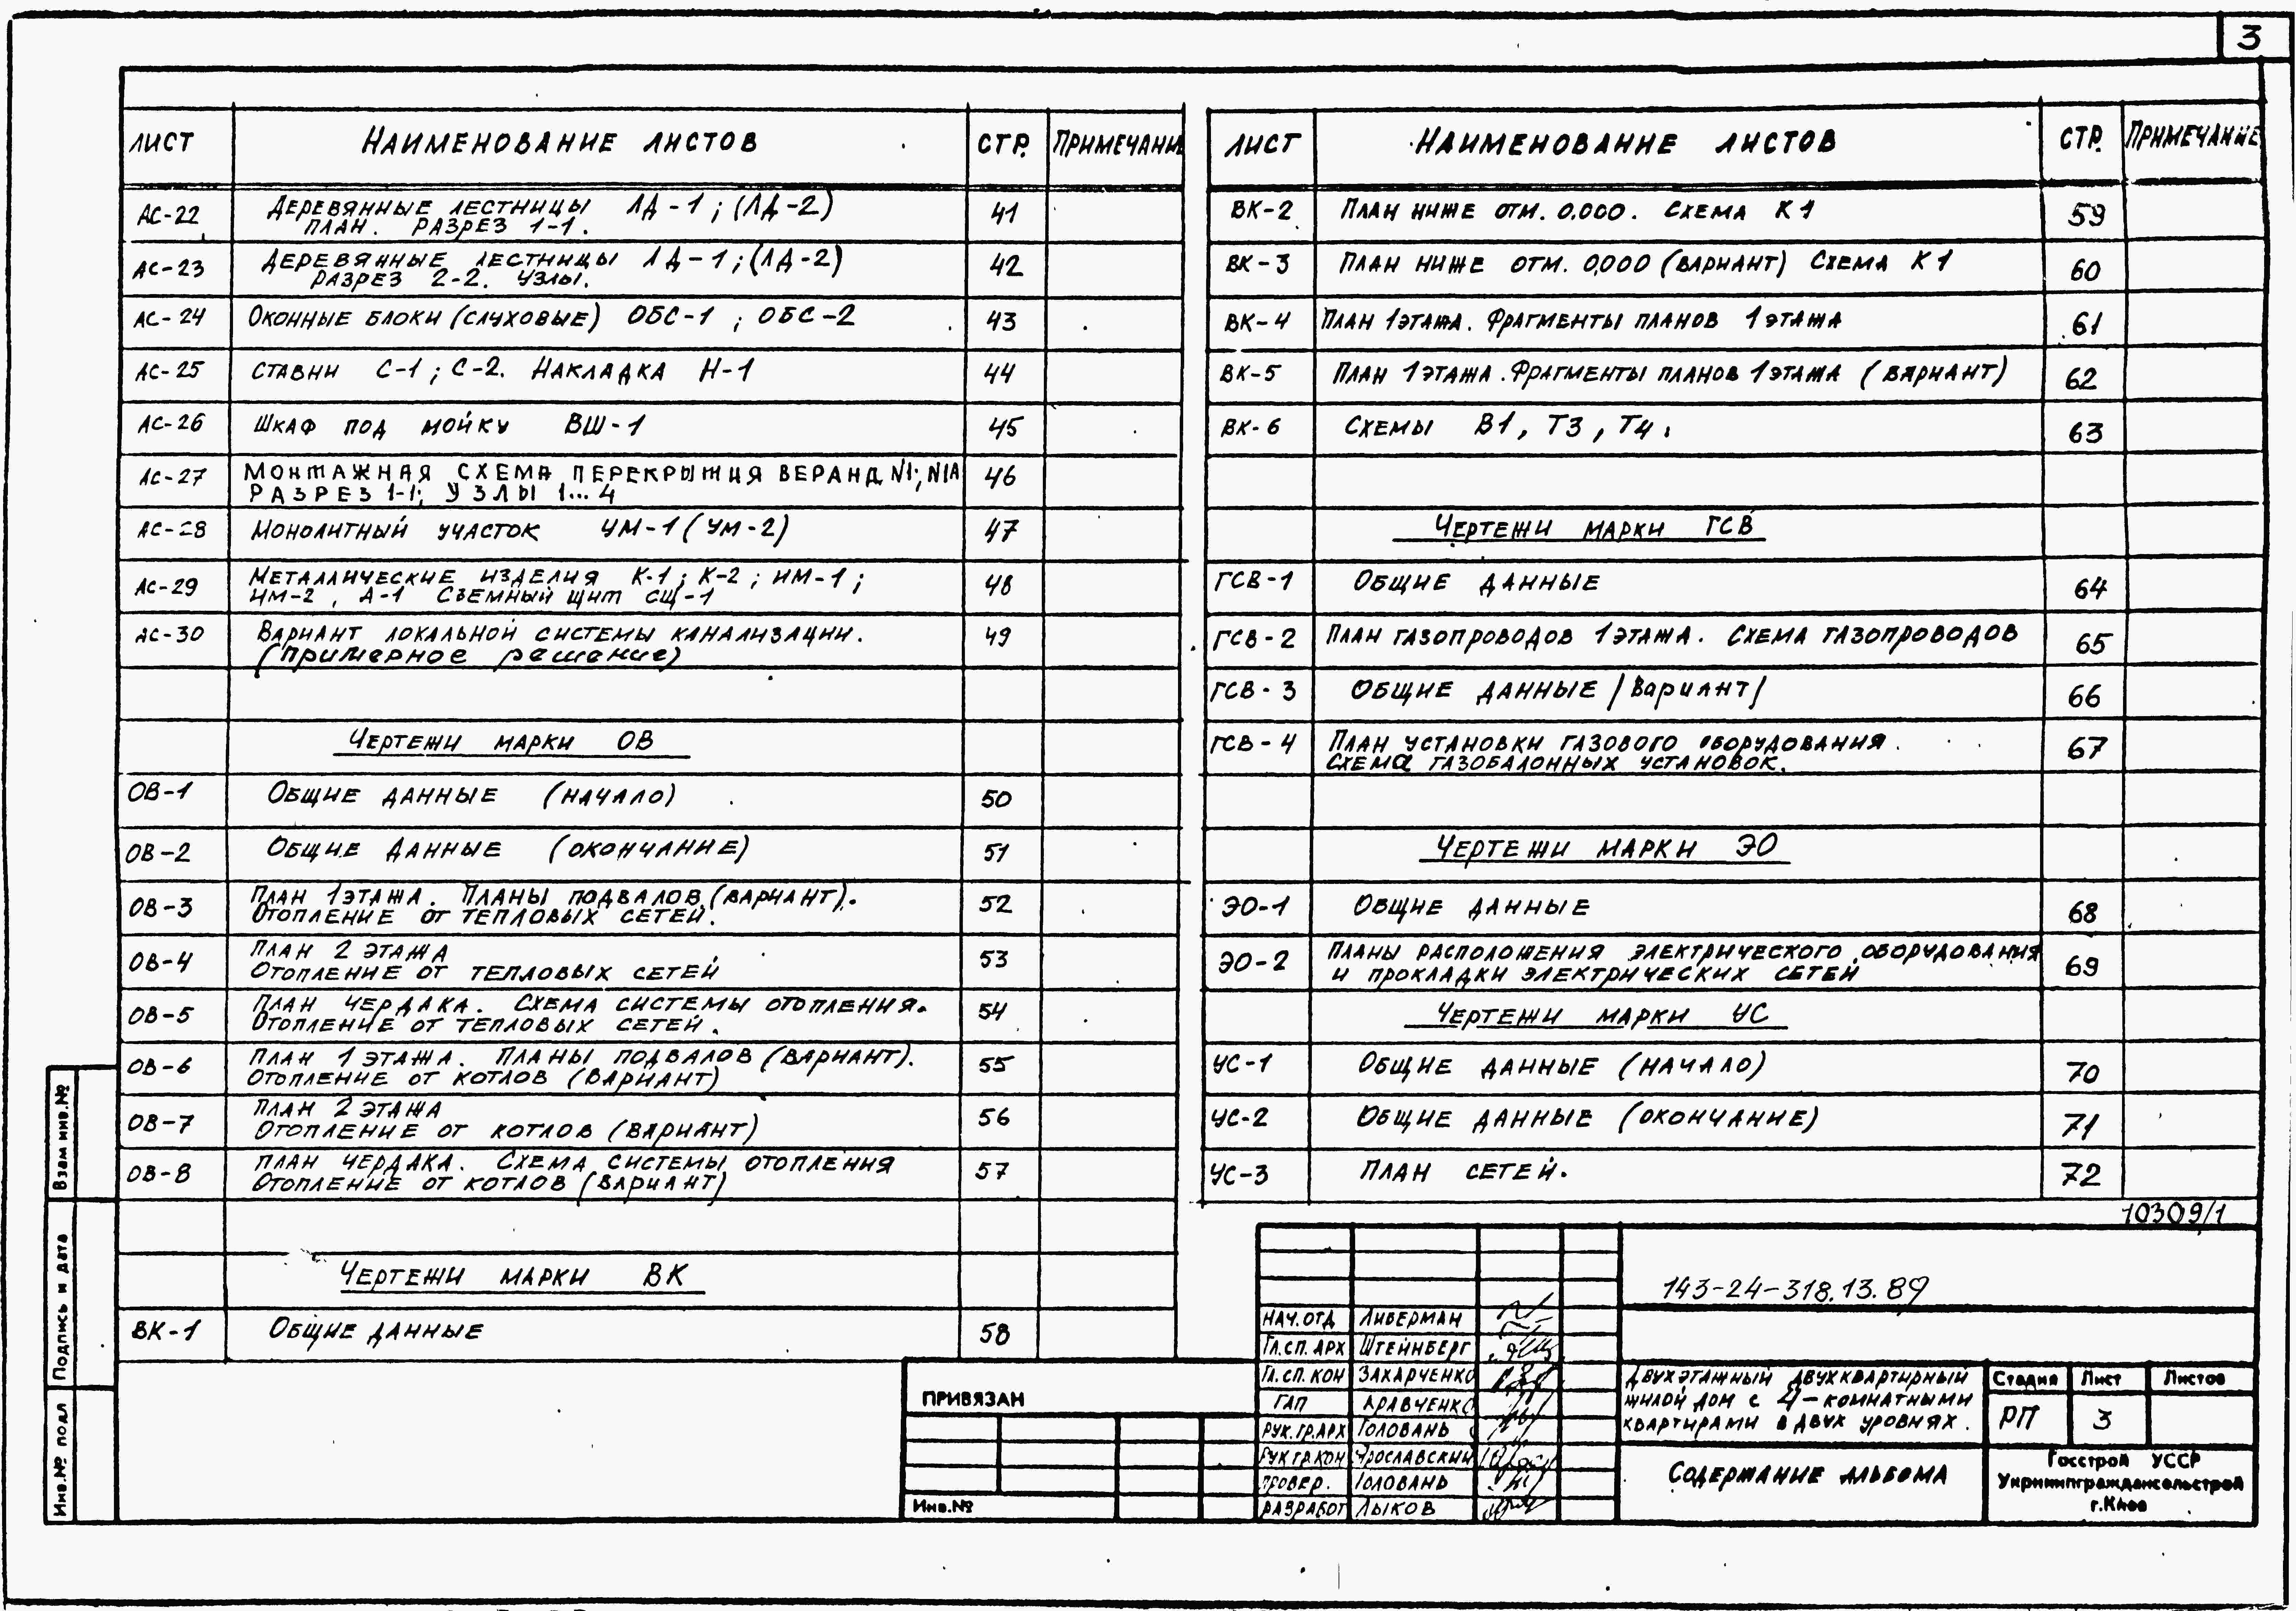 3
ЛИСТ НАИМЕНОВАНИЕ ЛИСТОВ СТР. ПРИМЕЧАНИ
АС-22 ДЕРЕВЯННЫЕ ЛЕСТНИЦЫ ЛД-1; (ЛД-2) 41
ПЛАН. РАЗРЕЗ 1-1.
АС-23 ДЕРЕВЯННЫЕ ЛЕСТНИЦЫ ЛД-1; (ЛД-2) 42
РАЗРЕЗ 2-2. УЗЛЫ.
АС-24 ОКОННЫЕ БЛОКИ (СЛУХОВЫЕ) ОБС-1; ОБС-2 43
АС-25 СТАВНИ С-1; С-2. НАКЛАДКА Н-1 44
АС-26 ШКАФ ПОД МОЙКУ ВШ-1 45
АС-27 МОНТАЖНАЯ СХЕМА ПЕРЕКРЫТИЯ ВЕРАНД N1; N1А 46
РАЗРЕЗ 1-1; УЗЛЫ 1...4
АС-28 МОНОЛИТНЫЙ УЧАСТОК УМ-1 (УМ-2) 47
АС-29 МЕТАЛЛИЧЕСКИЕ ИЗДЕЛИЯ К-1; К-2; ИМ-1; 48
ИМ-2, А-1 СЪЕМНЫЙ ЩИТ СЩ-1
АС-30 ВАРИАНТ ЛОКАЛЬНОЙ СИСТЕМЫ КАНАЛИЗАЦИИ. 49
(ПРИМЕРНОЕ РЕШЕНИЕ)
ЧЕРТЕЖИ МАРКИ ОВ
ОВ-1 ОБЩИЕ ДАННЫЕ (НАЧАЛО) 50
ОВ-2 ОБЩИЕ ДАННЫЕ (ОКОНЧАНИЕ) 51
ОВ-3 ПЛАН 1 ЭТАЖА. ПЛАНЫ ПОДВАЛОВ (ВАРИАНТ). 52
ОТОПЛЕНИЕ ОТ ТЕПЛОВЫХ СЕТЕЙ.
ОВ-4 ПЛАН 2 ЭТАЖА 53
ОТОПЛЕНИЕ ОТ ТЕПЛОВЫХ СЕТЕЙ
ОВ-5 ПЛАН ЧЕРДАКА. СХЕМА СИСТЕМЫ ОТОПЛЕНИЯ. 54
ОТОПЛЕНИЕ ОТ ТЕПЛОВЫХ СЕТЕЙ.
ОВ-6 ПЛАН 1 ЭТАЖА. ПЛАНЫ ПОДВАЛОВ (ВАРИАНТ). 55
ОТОПЛЕНИЕ ОТ КОТЛОВ (ВАРИАНТ)
ОВ-7 ПЛАН 2 ЭТАЖА 56
ОТОПЛЕНИЕ ОТ КОТЛОВ (ВАРИАНТ)
ОВ-8 ПЛАН ЧЕРДАКА. СХЕМА СИСТЕМЫ ОТОПЛЕНИЯ 57
ОТОПЛЕНИЕ ОТ КОТЛОВ (ВАРИАНТ)
ЧЕРТЕЖИ МАРКИ ВК
ВК-1 ОБЩИЕ ДАННЫЕ 58
ЛИСТ НАИМЕНОВАНИЕ ЛИСТОВ СТР. ПРИМЕЧАНИЕ
ВК-2 ПЛАН НИЖЕ ОТМ. 0.000. СХЕМА К1 59
ВК-3 ПЛАН НИЖЕ ОТМ. 0,000 (ВАРИАНТ) СХЕМА К1 60
ВК-4 ПЛАН 1 ЭТАЖА. ФРАГМЕНТЫ ПЛАНОВ 1 ЭТАЖА 61
ВК-5 ПЛАН 1 ЭТАЖА. ФРАГМЕНТЫ ПЛАНОВ 1 ЭТАЖА (ВАРИАНТ) 62
ВК-6 СХЕМЫ В1, Т3, Т4. 63
ЧЕРТЕЖИ МАРКИ ГСВ
ГСВ-1 ОБЩИЕ ДАННЫЕ 64
ГСВ-2 ПЛАН ГАЗОПРОВОДОВ 1 ЭТАЖА. СХЕМА ГАЗОПРОВОДОВ 65
ГСВ-3 ОБЩИЕ ДАННЫЕ /ВАРИАНТ/ 66
ГСВ-4 ПЛАН УСТАНОВКИ ГАЗОВОГО ОБОРУДОВАНИЯ. 67
СХЕМА ГАЗОБАЛОННЫХ УСТАНОВОК.
ЧЕРТЕЖИ МАРКИ ЭО
ЭО-1 ОБЩИЕ ДАННЫЕ 68
ЭО-2 ПЛАНЫ РАСПОЛОЖЕНИЯ ЭЛЕКТРИЧЕСКОГО ОБОРУДОВАНИЯ 69
И ПРОКЛАДКИ ЭЛЕКТРИЧЕСКИХ СЕТЕЙ
ЧЕРТЕЖИ МАРКИ УС
УС-1 ОБЩИЕ ДАННЫЕ (НАЧАЛО) 70
УС-2 ОБЩИЕ ДАННЫЕ (ОКОНЧАНИЕ) 71
УС-3 ПЛАН СЕТЕЙ. 72
10309/1
143-24-318.13.89
НАЧ.ОТД ЛИБЕРМАН
ГЛ.СП.АРХ ШТЕЙНБЕРГ
ГЛ.СП.КОН ЗАХАРЧЕНКО
ГАП КРАВЧЕНКО
РУК.ГР.АРХ ГОЛОВАНЬ
РУК.ГР.КОН ЯРОСЛАВСКИЙ
ПРОВЕР. ГОЛОВАНЬ
РАЗРАБОТ ЛЫКОВ
ДВУХЭТАЖНЫЙ ДВУХКВАРТИРНЫЙ
ЖИЛОЙ ДОМ С 4-КОМНАТНЫМИ
КВАРТИРАМИ В ДВУХ УРОВНЯХ.
Стадия Лист Листов
РП 3
СОДЕРЖАНИЕ АЛЬБОМА
Госстрой УССР
Укрниипграждансельстрой
г.Киев
ПРИВЯЗАН
Инв.№
Взам инв.№
Подпись и дата
Инв.№ подл